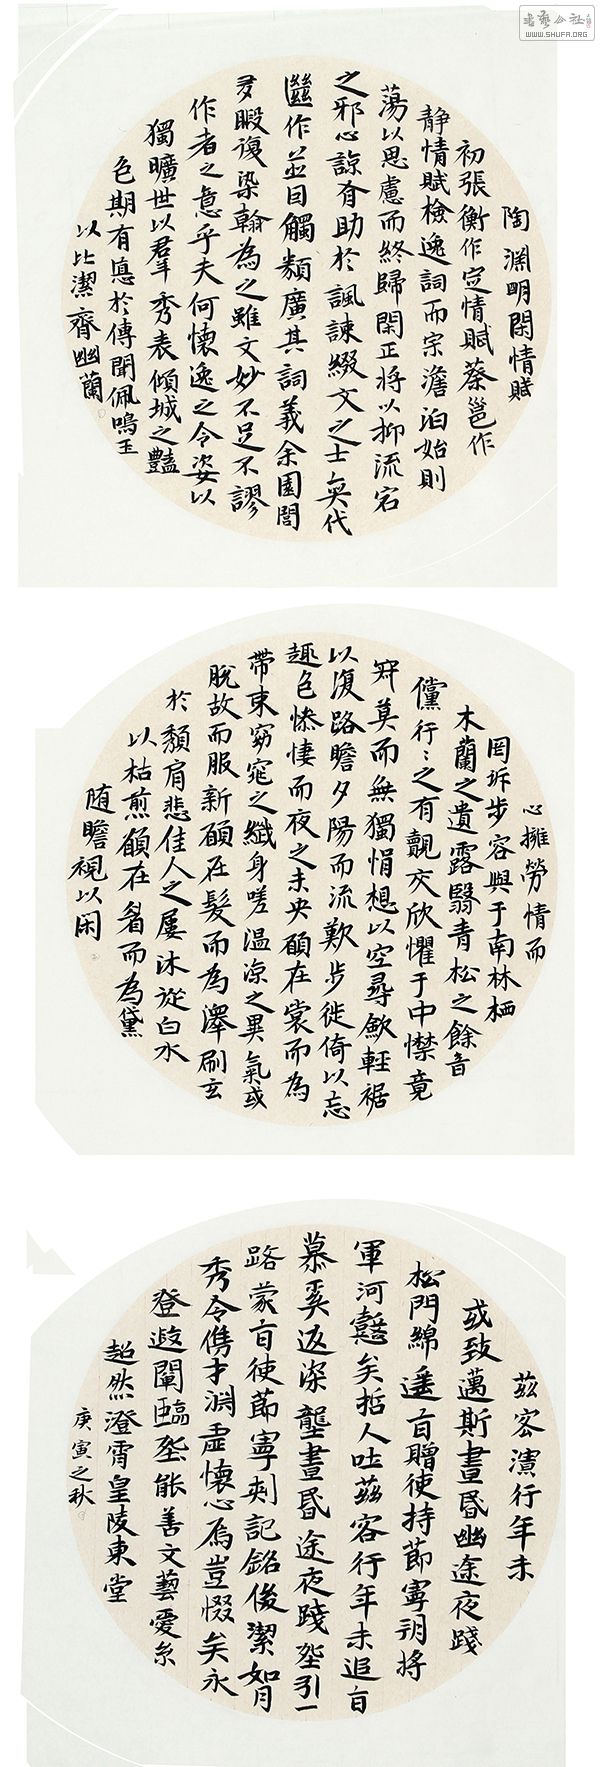 書藝公社
WWW.SHUFA.ORG
陶渊明閑情賦
初張衡作定情賦蔡邕作
静情賦檢逸詞而宗澹泊始則
蕩以思慮而終歸閑正將以抑流宕
之邪心諒有助於諷諫綴文之士奕代
繼作並因觸類廣其詞義余園閭
多暇復染翰為之雖文妙不足不謬
作者之意乎夫何懷逸之令姿以
獨曠世以羣秀表傾城之豔
色期有悳於傳聞佩鳴玉
以比潔齊幽蘭
心擁勞情而
罔訴步容與于南林栖
木蘭之遺露翳青松之餘音
儻行〻之有覿交欣懼于中襟竟
寂莫而無獨悁想以空尋斂輕裾
以復路瞻夕陽而流歎步徙倚以忘
趣色慘悽而夜之未央願在裳而為
帶束窈窕之纖身嗟温凉之異氣或
脱故而服新願在髮而為澤刷玄
於頽肩悲佳人之屢沐從白水
以枯煎願在眉而為黛
随瞻視以闲
茲容濱行年未
或致邁斯晝昏幽途夜踐
松門綿遥亯贈使持節寧朔將
軍河懿矣哲人吐茲容行年未追亯
慕奚返深壟晝昏途夜踐聖引一
路蒙亯使節寧刺記銘後潔如月
秀令儁才渊虚懷心焉豈惙矣永
登歧闡臨聖能善文藝愛糸
超然澄霄皇陵東堂
庚寅之秋